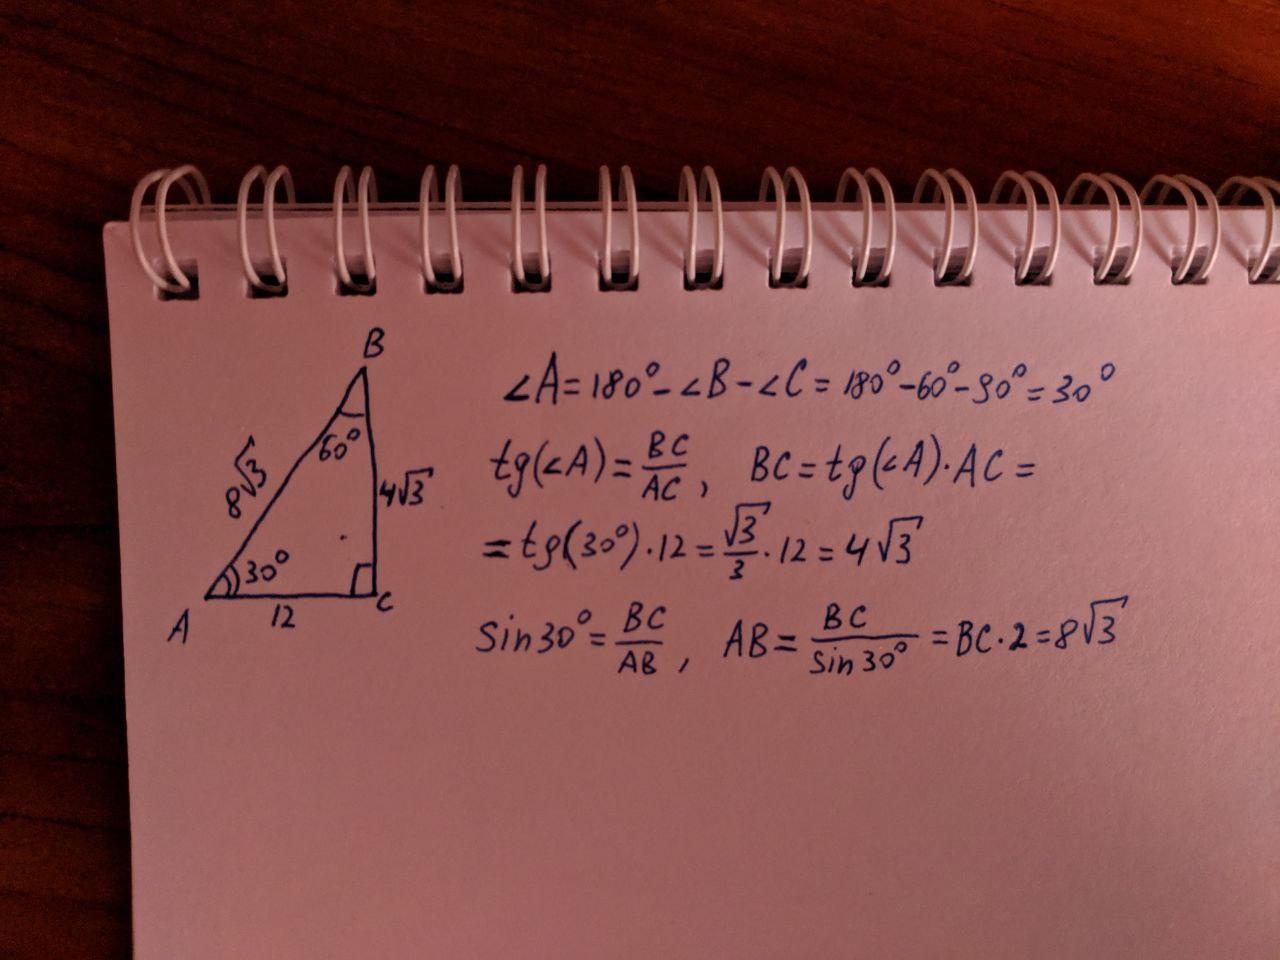 B
60°
8√3
4√3
30°
A
12
C
∠A = 180° - ∠B - ∠C = 180° - 60° - 90° = 30°
tg(∠A) = BC/AC, BC = tg(∠A) · AC =
= tg(30°) · 12 = √3/3 · 12 = 4√3
Sin30° = BC/AB, AB = BC/Sin30° = BC · 2 = 8√3